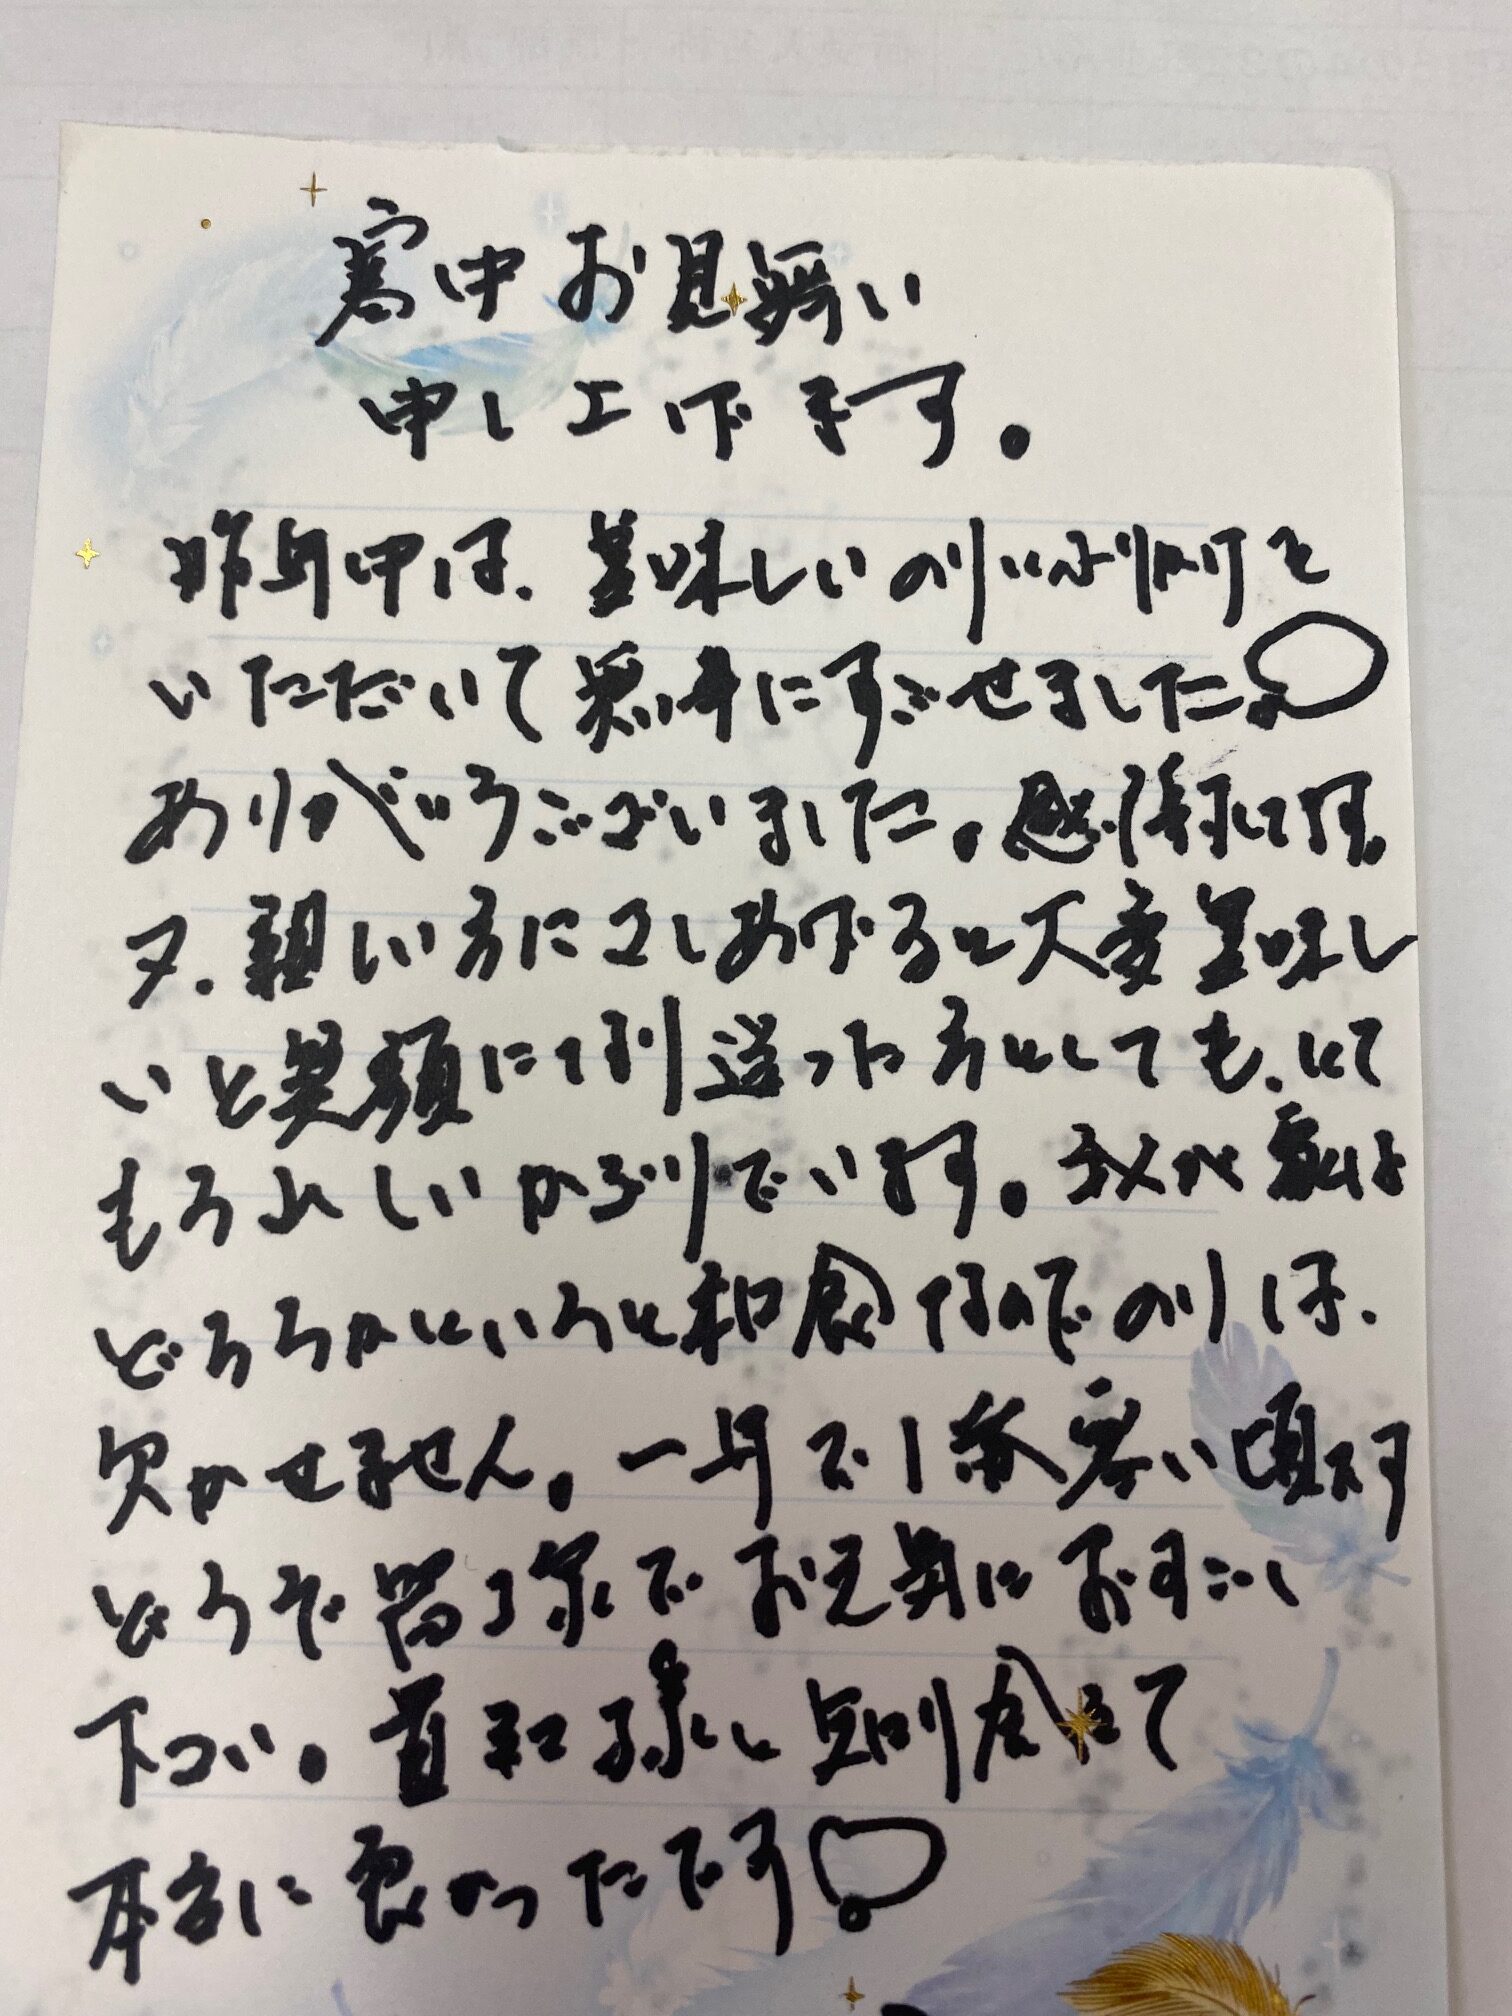 寒中お見舞い
申し上げます。
昨年中は、美味しいのりいふりかけを
いただいて無事にすごせました。
ありがとうございました。感謝してます。
又、親しい方にさしあげると大変美味し
いと笑顔に 送った方としても、とて
もうれしいかぎりでいます。我が家は
どちらかというと和食なのでのりは、
欠かせません。一年で1番寒い頃です
どうぞ 様でお元気におすごし
下さい。 様と知り会えて
本当に良かったです